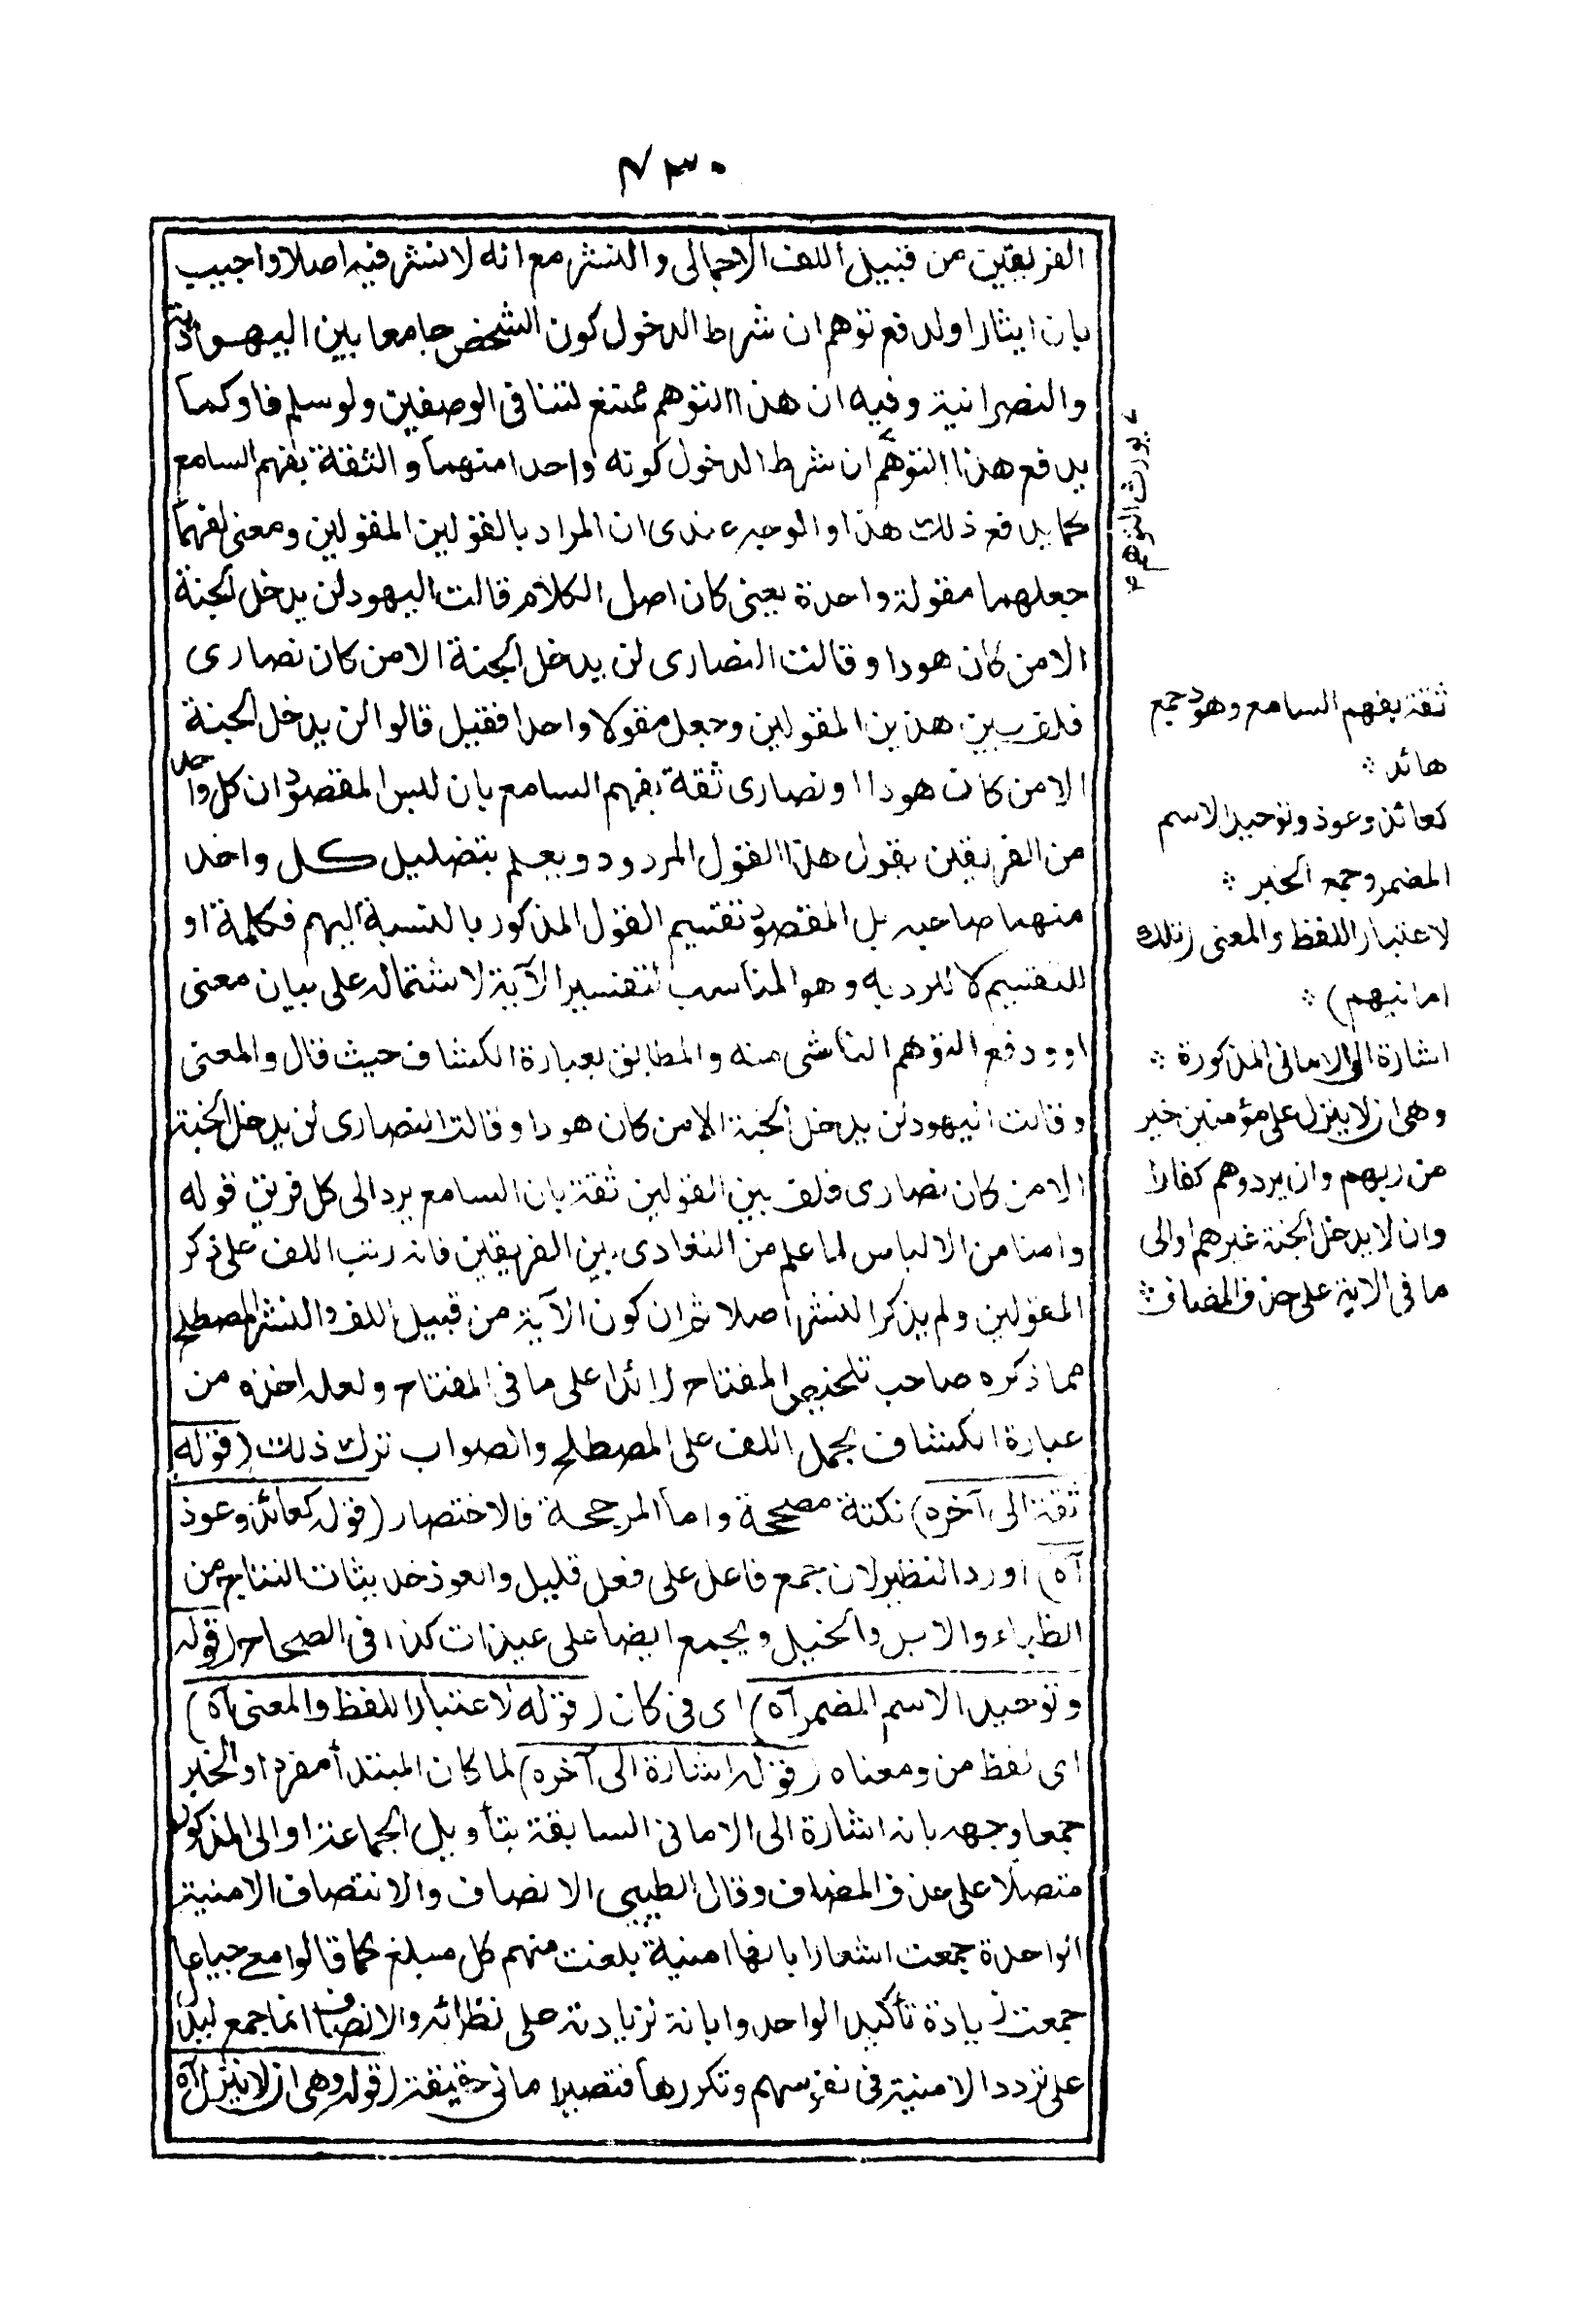 ٧٣٠
الفريقين من قبيل اللف الاجمالى والنشر مع انه لا نشر فيه اصلا واجيب
بان ايثار او لدفع توهم ان شرط الدخول كون الشخص جامعا بين اليهودية
والنصرانية وفيه ان هذا التوهم ممتنع لتنافى الوصفين ولو سلم فاو كما
يدفع هذا التوهم ان شرط الدخول كونه واحدا منهما والثقة بفهم السامع
كما يدفع ذلك هذا والوجه عندى ان المراد بالقولين المقولين ومعنى لفهما
جعلهما مقولة واحدة يعنى كان اصل الكلام قالت اليهود لن يدخل الجنة
الا من كان هودا وقالت النصارى لن يدخل الجنة الا من كان نصارى
فلف بين هذين المقولين وجعل مقولا واحدا فقيل قالوا لن يدخل الجنة
الا من كان هودا او نصارى ثقة بفهم السامع بان ليس المقصود ان كل واحد
من الفريقين يقول هذا القول المردود ويعلم بتضليل كل واحد
منهما صاحبه بل المقصود تقسيم القول المذكور بالنسبة اليهم فكلمة او
للتقسيم لا للترديد وهو المناسب لتفسير الآية لاشتماله على بيان معنى
او ودفع التوهم الناشى منه والمطابق لعبارة الكشاف حيث قال والمعنى
وقالت اليهود لن يدخل الجنة الا من كان هودا وقالت النصارى لن يدخل الجنة
الا من كان نصارى فلف بين القولين ثقة بان السامع يرد الى كل فريق قوله
وامنا من الالباس لما علم من التعادى بين الفريقين فانه رتب اللف على ذكر
المقولين ولم يذكر النشر اصلا ثم ان كون الآية من قبيل اللف والنشر المصطلح
مما ذكره صاحب تلخيص المفتاح زائدا على ما فى المفتاح ولعله اخذه من
عبارة الكشاف بحمل اللف على المصطلح والصواب ترك ذلك (قوله
ثقة الى آخره) نكتة مصححة واما المرجحة فالاختصار (قوله كعائذ وعوذ
آه) اورد النظير لان جمع فاعل على فعل قليل والعوذ حديثات النتاج من
الظباء والابل والخيل ويجمع ايضا على عيذات كذا فى الصحاح (قوله
وتوحيد الاسم المضمر آه) اى فى كان (قوله لاعتبار اللفظ والمعنى آه)
اى لفظ من ومعناه (قوله اشارة الى آخره) لما كان المبتدأ مفردا والخبر
جمعا وجهه بانه اشارة الى الامانى السابقة بتأويل الجماعة او الى المذكور
متصلا على حذف المضاف وقال الطيبى الانصاف والانتصاف الامنية
الواحدة جمعت اشعارا بانها امنية بلغت منهم كل مبلغ كما قالوا معى جياعا
جمعت زيادة تأكيد الواحد وابانة لزيادته على نظرائه والانصاف انما جمع ليدل
على تردد الامنية فى نفوسهم وتكررها فتصير امانى حقيقة (قوله وهى ان لا ينزل آه
يورث التوهم
ثقة بفهم السامع وهود جمع
هائد
كعائذ وعوذ وتوحيد الاسم
المضمر وجمع الخبر
لاعتبار اللفظ والمعنى (تلك
امانيهم)
اشارة الى الامانى المذكورة
وهى ان لا ينزل على مؤمنين خير
من ربهم وان يردوهم كفارا
وان لا يدخل الجنة غيرهم او الى
ما فى الاية على حذف المضاف